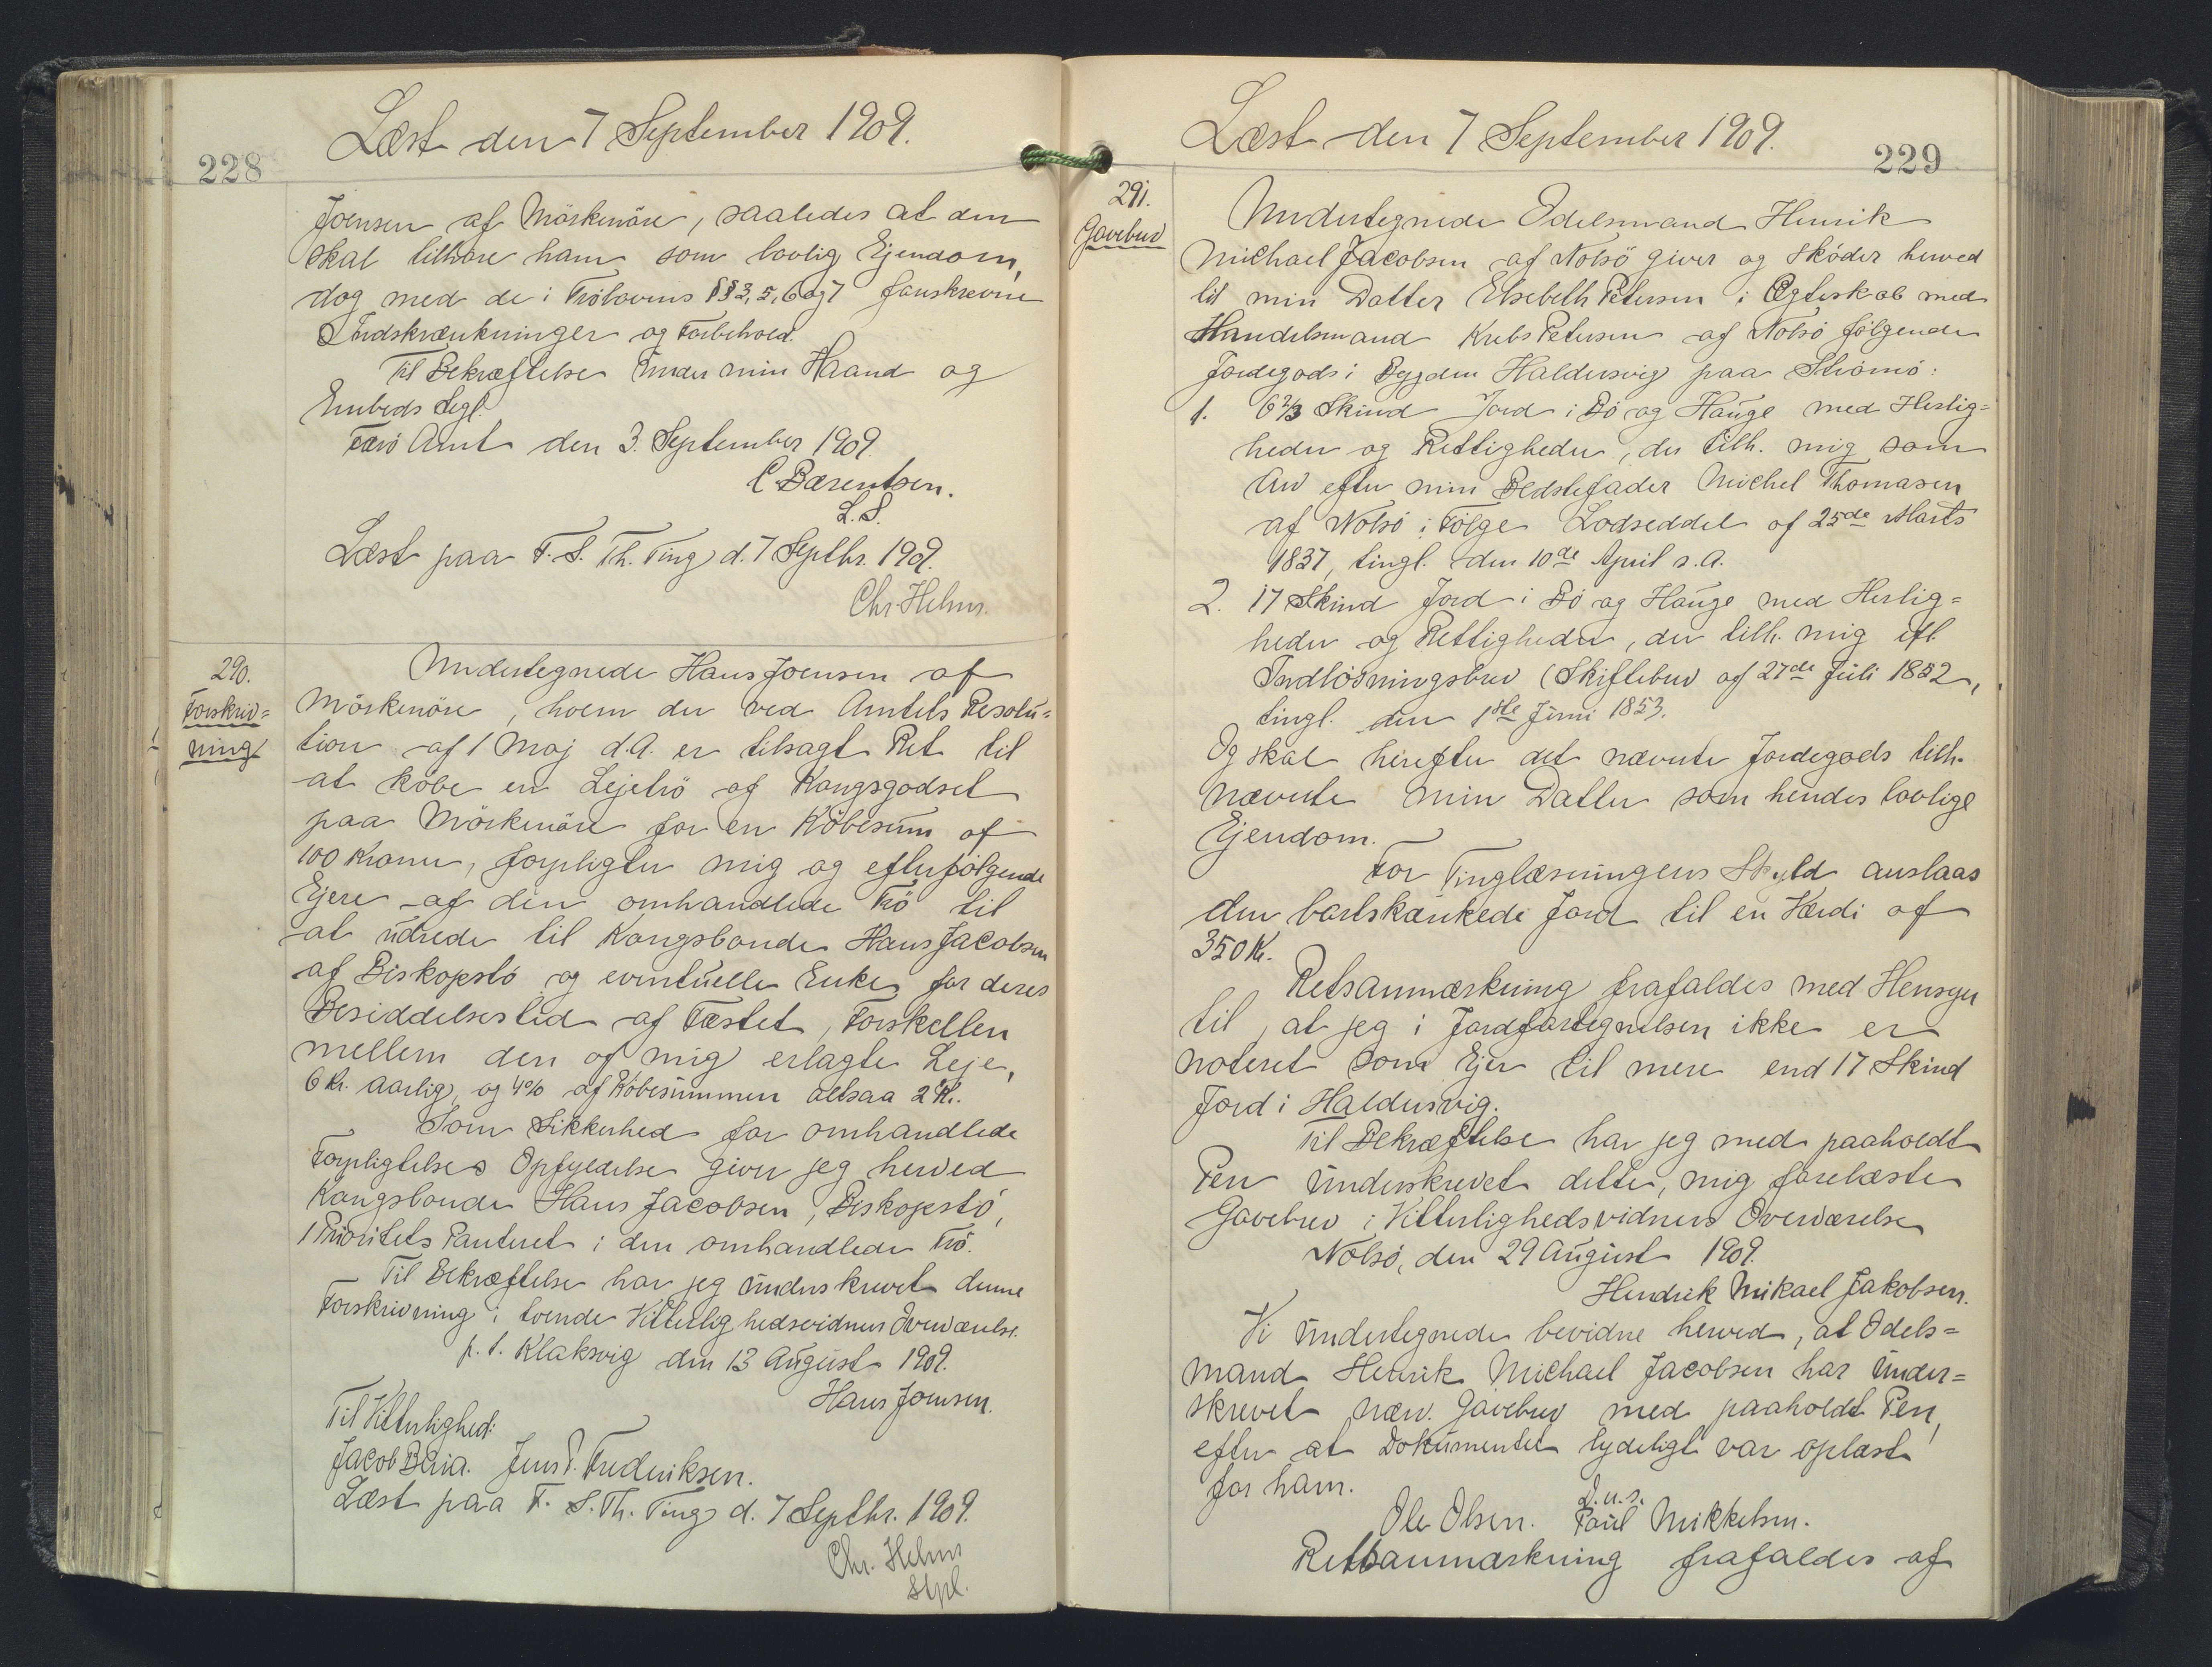 228
Læst den 7 September 1909.
Joensen af Mörkenöre, saaledes at den
skal tilhöre ham som lovlig Ejendom,
dog med de i Trölovens §§ 3, 5, 6 og 7 foreskrevne
Indskrænkninger og Forbehold.
Til Bekræftelse under min Haand og
Embeds Segl.
Færö Amt den 3. September 1909.
C. Bærentsen.
L.S.
Læst paa F. S. Th. Ting d. 7 Septbr. 1909.
Chr. Helms.
290.
Forskriv=
ning
Undertegnede Hans Joensen af
Mörkenöre, hvem der ved Amtets Resolu=
tion af 1 Maj d.A. er tilsagt Ret til
at köbe en Lejetrö af Kongsgodset
paa Mörkenöre for en Köbesum af
100 Kroner, forpligter mig og efterfölgende
Ejere af den omhandlede Trö til
at udrede til Kongsbonde Hans Jacobsen
af Biskopstö og eventuelle Enke, for deres
Besiddelsestid af Fæstet, Forskellen
mellem den af mig erlagte Leje,
6 Kr. aarlig, og 4% af Köbesummen altsaa 2 Kr.
Som Sikkerhed for omhandlede
Forpligtelses Opfyldelse giver jeg herved
Kongsbonde Hans Jacobsen, Biskopstö,
1 Prioritets Panteret i den omhandlede Trö.
Til Bekræftelse har jeg underskrevet denne
Forskrivning i tvende Vitterlighedsvidners Overværelse.
p. t. Klaksvig den 13 August 1909.
Hans Joensen.
Til Vitterlighed:
Jacob Jens P. Frederiksen.
Læst paa F. S. Th. Ting d. 7 Septbr. 1909.
Chr. Helms
stpl.
Læst den 7 September 1909.
229
291.
Gavebrev
Undertegnede Odelsmand Henrik
Michael Jacobsen af Nolsö giver og sköder herved
til min Datter Elsebeth Petersen i Ægteskab med
Handelsmand Krebs Petersen af Nolsö fölgende
Jordegods i Bygden Haldersvig paa Strömö:
1. 6 2/3 Skind Jord i Bö og Hauge med Herlig=
heder og Rettigheder, der tilh. mig som
Arv efter min Bedstefader Michel Thomasen
af Nolsö i Fölge Lodseddel af 25de Marts
1837, tingl. den 10de April s. A.
2. 17 Skind Jord i Bö og Hauge med Herlig=
heder og Rettigheder, der tilh. mig efl.
Indlösningsbrev (Skiftebrev af 27de Juli 1852,
tingl. den 1ste Juni 1853.
Og skal herefter det nævnte Jordegods tilh.
nævnte min Datter som hendes lovlige
Ejendom.
For Tinglæsningens Skyld anslaas
den bortskænkede Jord til en Værdi af
350 Kr.
Retsanmærkning frafaldes med Hensyn
til, at jeg i Jordfortegnelsen ikke er
noteret som Ejer til mere end 17 Skind
Jord i Haldersvig.
Til Bekræftelse har jeg med paaholdt
Pen underskrevet dette, mig forelæste
Gavebrev i Vitterlighedsvidners Overværelse
Nolsö, den 29 August 1909.
Hendrik Mikael Jakobsen.
Vi undertegnede bevidne herved, at Odels=
mand Henrik Michael Jacobsen har under=
skrevet næv. Gavebrev med paaholdt Pen,
efter at Dokumentet tydeligt var oplæst
for ham.
D.u.s.
Ole Olsen. Poul Mikkelsen.
Retsanmærkning frafaldes af